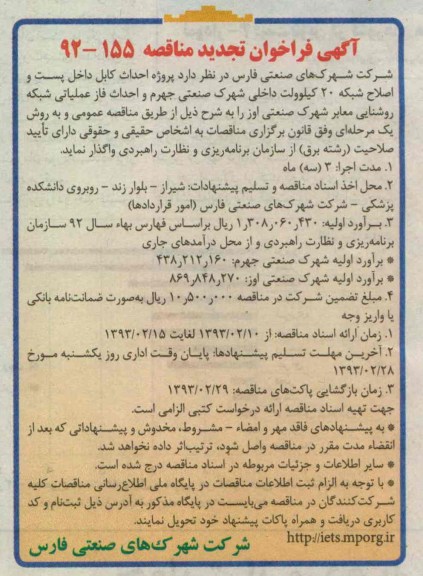 آگهی فراخوان تجدید مناقصه ۱۵۵ -۹۲
شرکت شهرک‌های صنعتی فارس در نظر دارد پروژه احداث کابل داخل پست و
اصلاح شبکه ۲۰ کیلوولت داخلی شهرک صنعتی جهرم و احداث فاز عملیاتی شبکه
روشنایی معابر شهرک صنعتی اوز را به شرح ذیل از طریق مناقصه عمومی و به روش
یک مرحله‌ای وفق قانون برگزاری مناقصات به اشخاص حقیقی و حقوقی دارای تأیید
صلاحیت (رشته برق) از سازمان برنامه‌ریزی و نظارت راهبردی واگذار نماید.
۱. مدت اجرا: ۳ (سه) ماه
۲. محل اخذ اسناد مناقصه و تسلیم پیشنهادات: شیراز - بلوار زند - روبروی دانشکده
پزشکی - شرکت شهرک‌های صنعتی فارس (امور قراردادها)
۳. برآورد اولیه: ۱٫۳۰۸٫۰۶۰٫۴۳۰ ریال براساس فهارس بهاء سال ۹۲ سازمان
برنامه‌ریزی و نظارت راهبردی و از محل درآمدهای جاری
* برآورد اولیه شهرک صنعتی جهرم: ۴۳۸٫۲۱۲٫۱۶۰
* برآورد اولیه شهرک صنعتی اوز: ۸۶۹٫۸۴۸٫۲۷۰
۴. مبلغ تضمین شرکت در مناقصه ۱۰٫۵۰۰٫۰۰۰ ریال به‌صورت ضمانت‌نامه بانکی
یا واریز وجه
۱. زمان ارائه اسناد مناقصه: از ۱۳۹۳/۰۲/۱۰ لغایت ۱۳۹۳/۰۲/۱۵
۲. آخرین مهلت تسلیم پیشنهادها: پایان وقت اداری روز یکشنبه مورخ
۱۳۹۳/۰۲/۲۸
۳. زمان بازگشایی پاکت‌های مناقصه: ۱۳۹۳/۰۲/۲۹
جهت تهیه اسناد مناقصه ارائه درخواست کتبی الزامی است.
* به پیشنهادهای فاقد مهر و امضاء - مشروط، مخدوش و پیشنهاداتی که بعد از
انقضاء مدت مقرر در مناقصه واصل شود، ترتیب‌اثر داده نخواهد شد.
* سایر اطلاعات و جزئیات مربوطه در اسناد مناقصه درج شده است.
* با توجه به الزام ثبت اطلاعات مناقصات در پایگاه ملی اطلاع‌رسانی مناقصات کلیه
شرکت‌کنندگان در مناقصه می‌بایست در پایگاه مذکور به آدرس ذیل ثبت‌نام و کد
کاربری دریافت و همراه پاکات پیشنهاد خود تحویل نمایند.
http://iets.mporg.ir
شرکت شهرک‌های صنعتی فارس